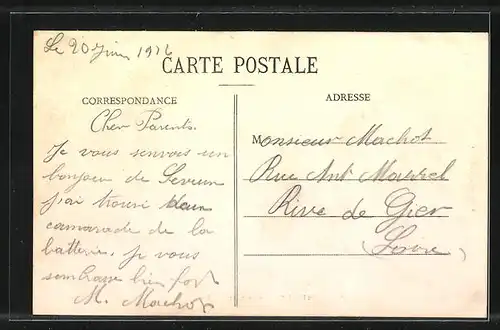 Le 20 Juin 1916
CARTE POSTALE
CORRESPONDANCE
Cher Parents.
Je vous senvois un
bonjour de
j'ai trouvé deux
camarade de la
batterie. je vous
sembrasse bien fort
M. Machot
ADRESSE
Monsieur Machot
Rue Ant Maurel
Rive de Gier
(Loire)